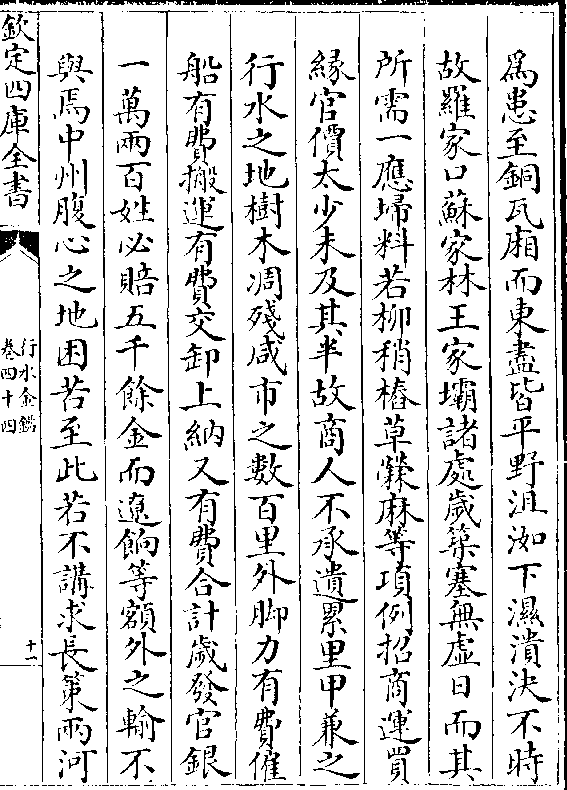 為患至銅瓦廂而東盡皆平野沮洳下濕潰決不時
故羅家口蘇家林王家壩諸處歲築塞無虛日而其
所需一應埽料若柳稍樁草檾麻等項例招商運買
緣官價太少未及其半故商人不承遺累里甲兼之
行水之地樹木凋殘咸市之數百里外脚力有費僱
船有費搬運有費交卸上納又有費合計歲發官銀
一萬兩百姓必賠五千餘金而遼餉等額外之輸不
與焉中州腹心之地困苦至此若不講求長策兩河
欽定四庫全書
行水金鑑
卷四十四
十一